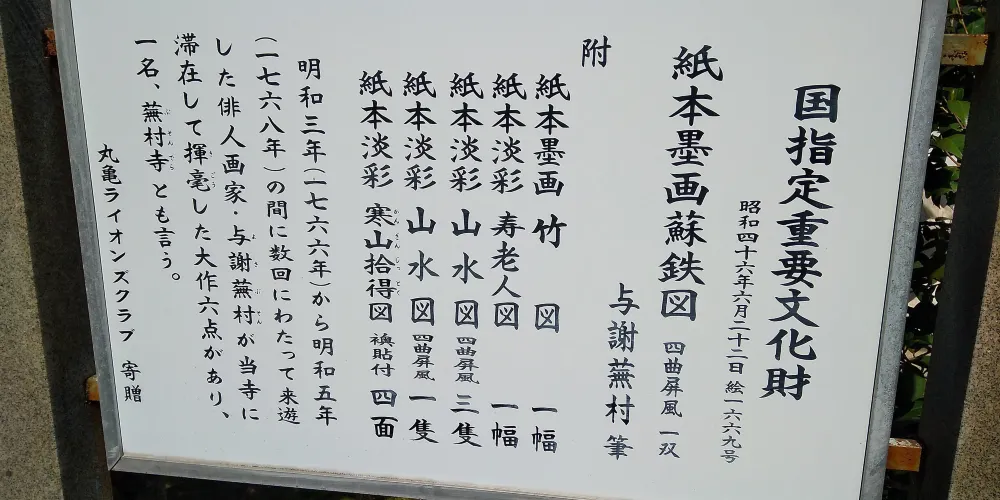 国指定重要文化財
昭和四十六年六月二十二日 絵一六六九号
紙本墨画蘇鉄図 四曲屏風 一双
与謝蕪村 筆
附
紙本墨画 竹図 一幅
紙本淡彩 寿老人図 一幅
紙本淡彩 山水図 四曲屏風 三隻
紙本淡彩 山水図 四曲屏風 一隻
紙本淡彩 寒山拾得図 襖貼付 四面
明和三年(一七六六年)から明和五年
(一七六八年)の間に数回にわたって来遊
した俳人画家・与謝蕪村が当寺に
滞在して揮毫した大作六点があり、
一名、蕪村寺とも言う。
丸亀ライオンズクラブ 寄贈